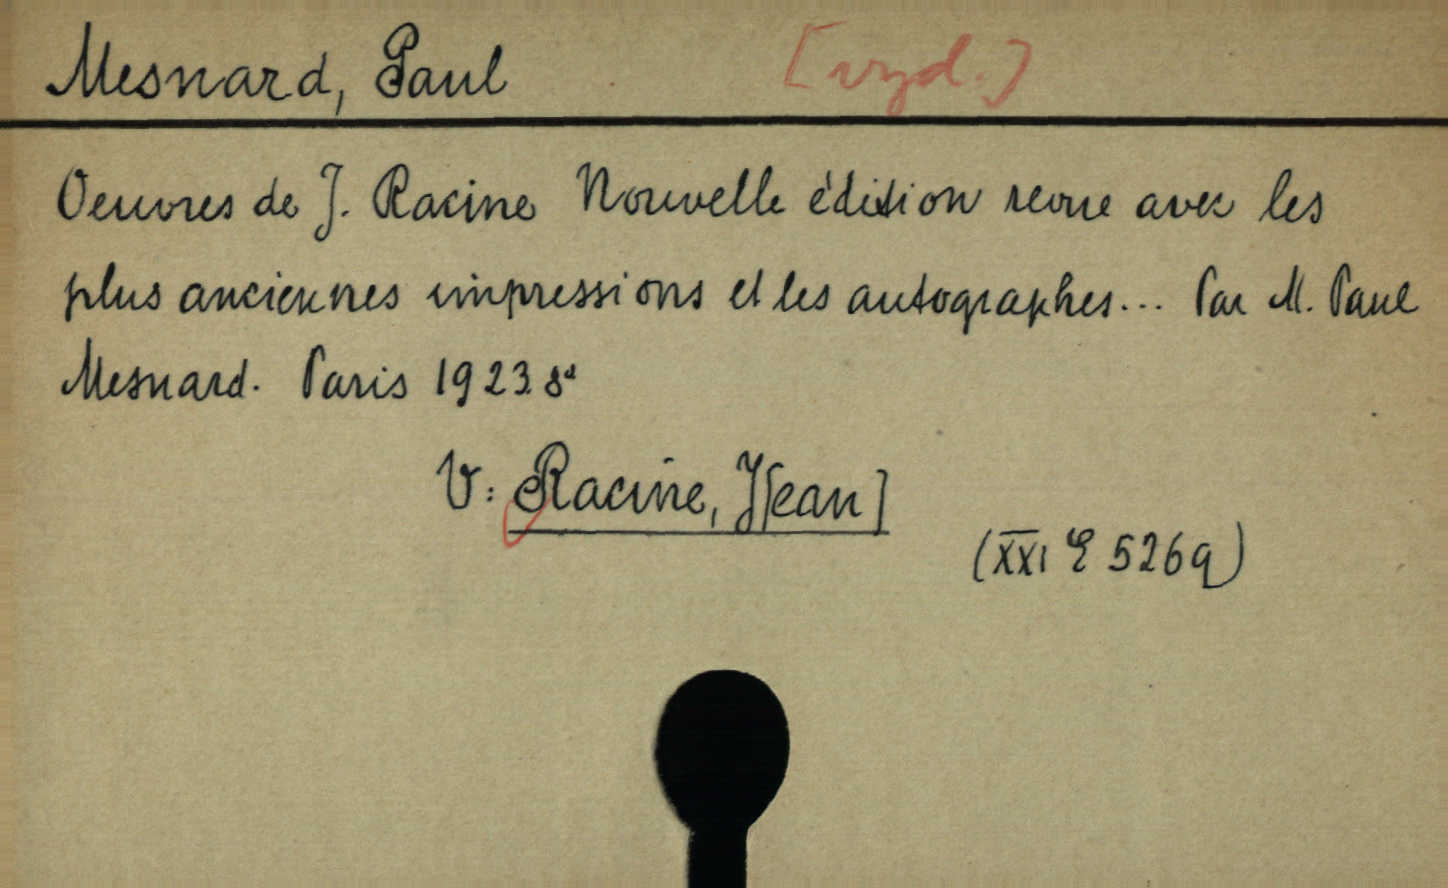 Mesnard, Paul [vyd.]
Oeuvres de J. Racine Nouvelle édition revue avec les
plus anciennes impressions et les autographes... Par M. Paul
Mesnard. Paris 1923 8°
V: Racine, J[ean]
(XXI E 526q)